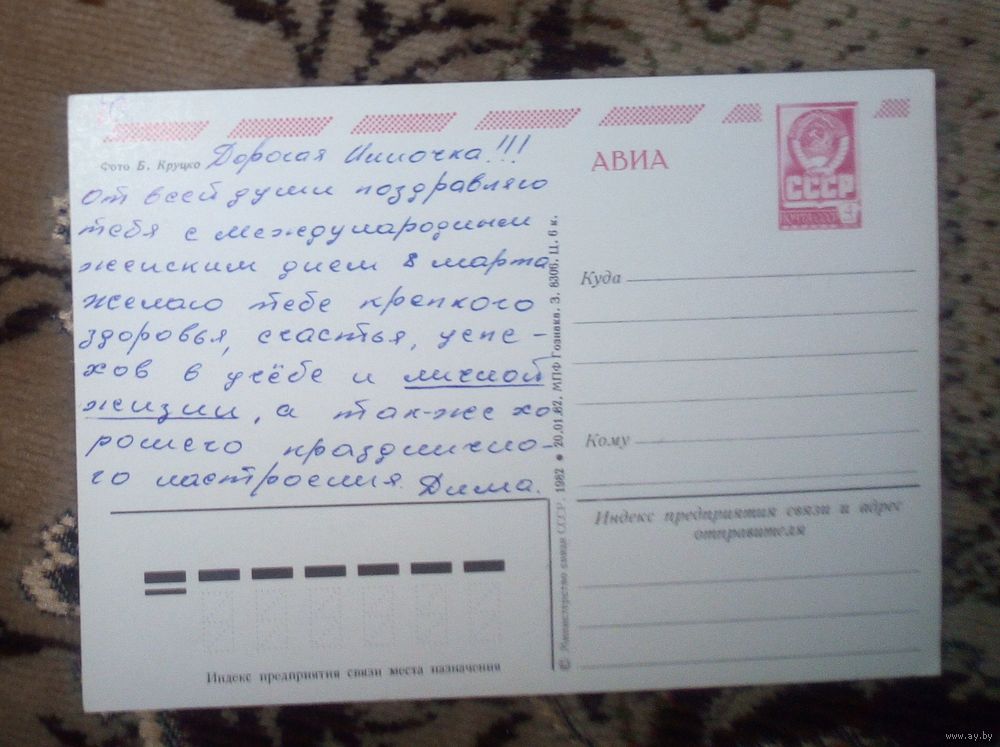 Фото Б. Круцко
Дорогая Инночка!!!
От всей души поздравляю
тебя с международным
женским днем 8 марта
желаю тебе крепкого
здоровья, счастья, успе-
хов в учёбе и личной
жизни, а так-же хо
рошего празднично-
го настроения. Дима.
Индекс предприятия связи места назначения
© Министерство связи СССР. 1982 ● 20.01.82. МПФ Гознака. З. 8306. Ц. 6 к.
АВИА
СССР
ПОЧТА СССР
Куда
Кому
Индекс предприятия связи и адрес
отправителя
www.ay.by